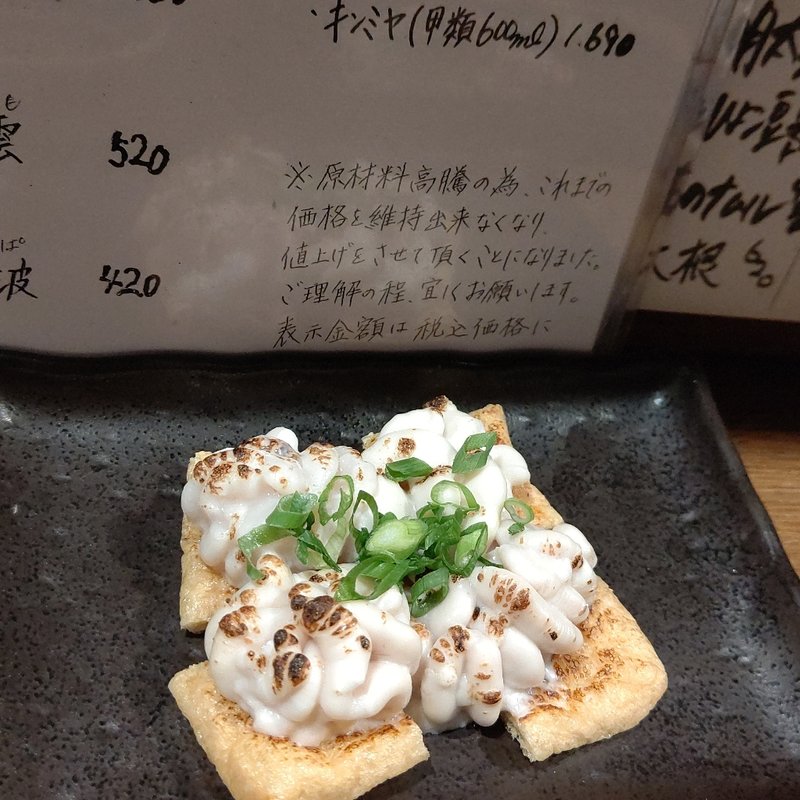 ・キンミヤ(甲類600ml) 1.690
雲 520
波 420
※原材料高騰の為、これまでの
価格を維持出来なくなり、
値上げをさせて頂くことになりました。
ご理解の程、宜しくお願いします。
表示金額は税込価格に
大根